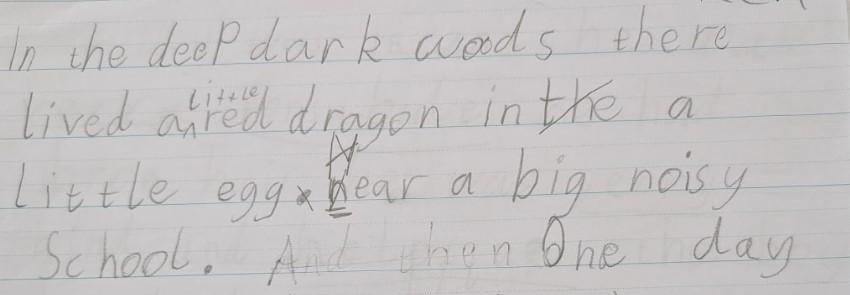 In the deep dark woods there
lived a little red dragon in the a
little egg. Near a big noisy
School. And then One day